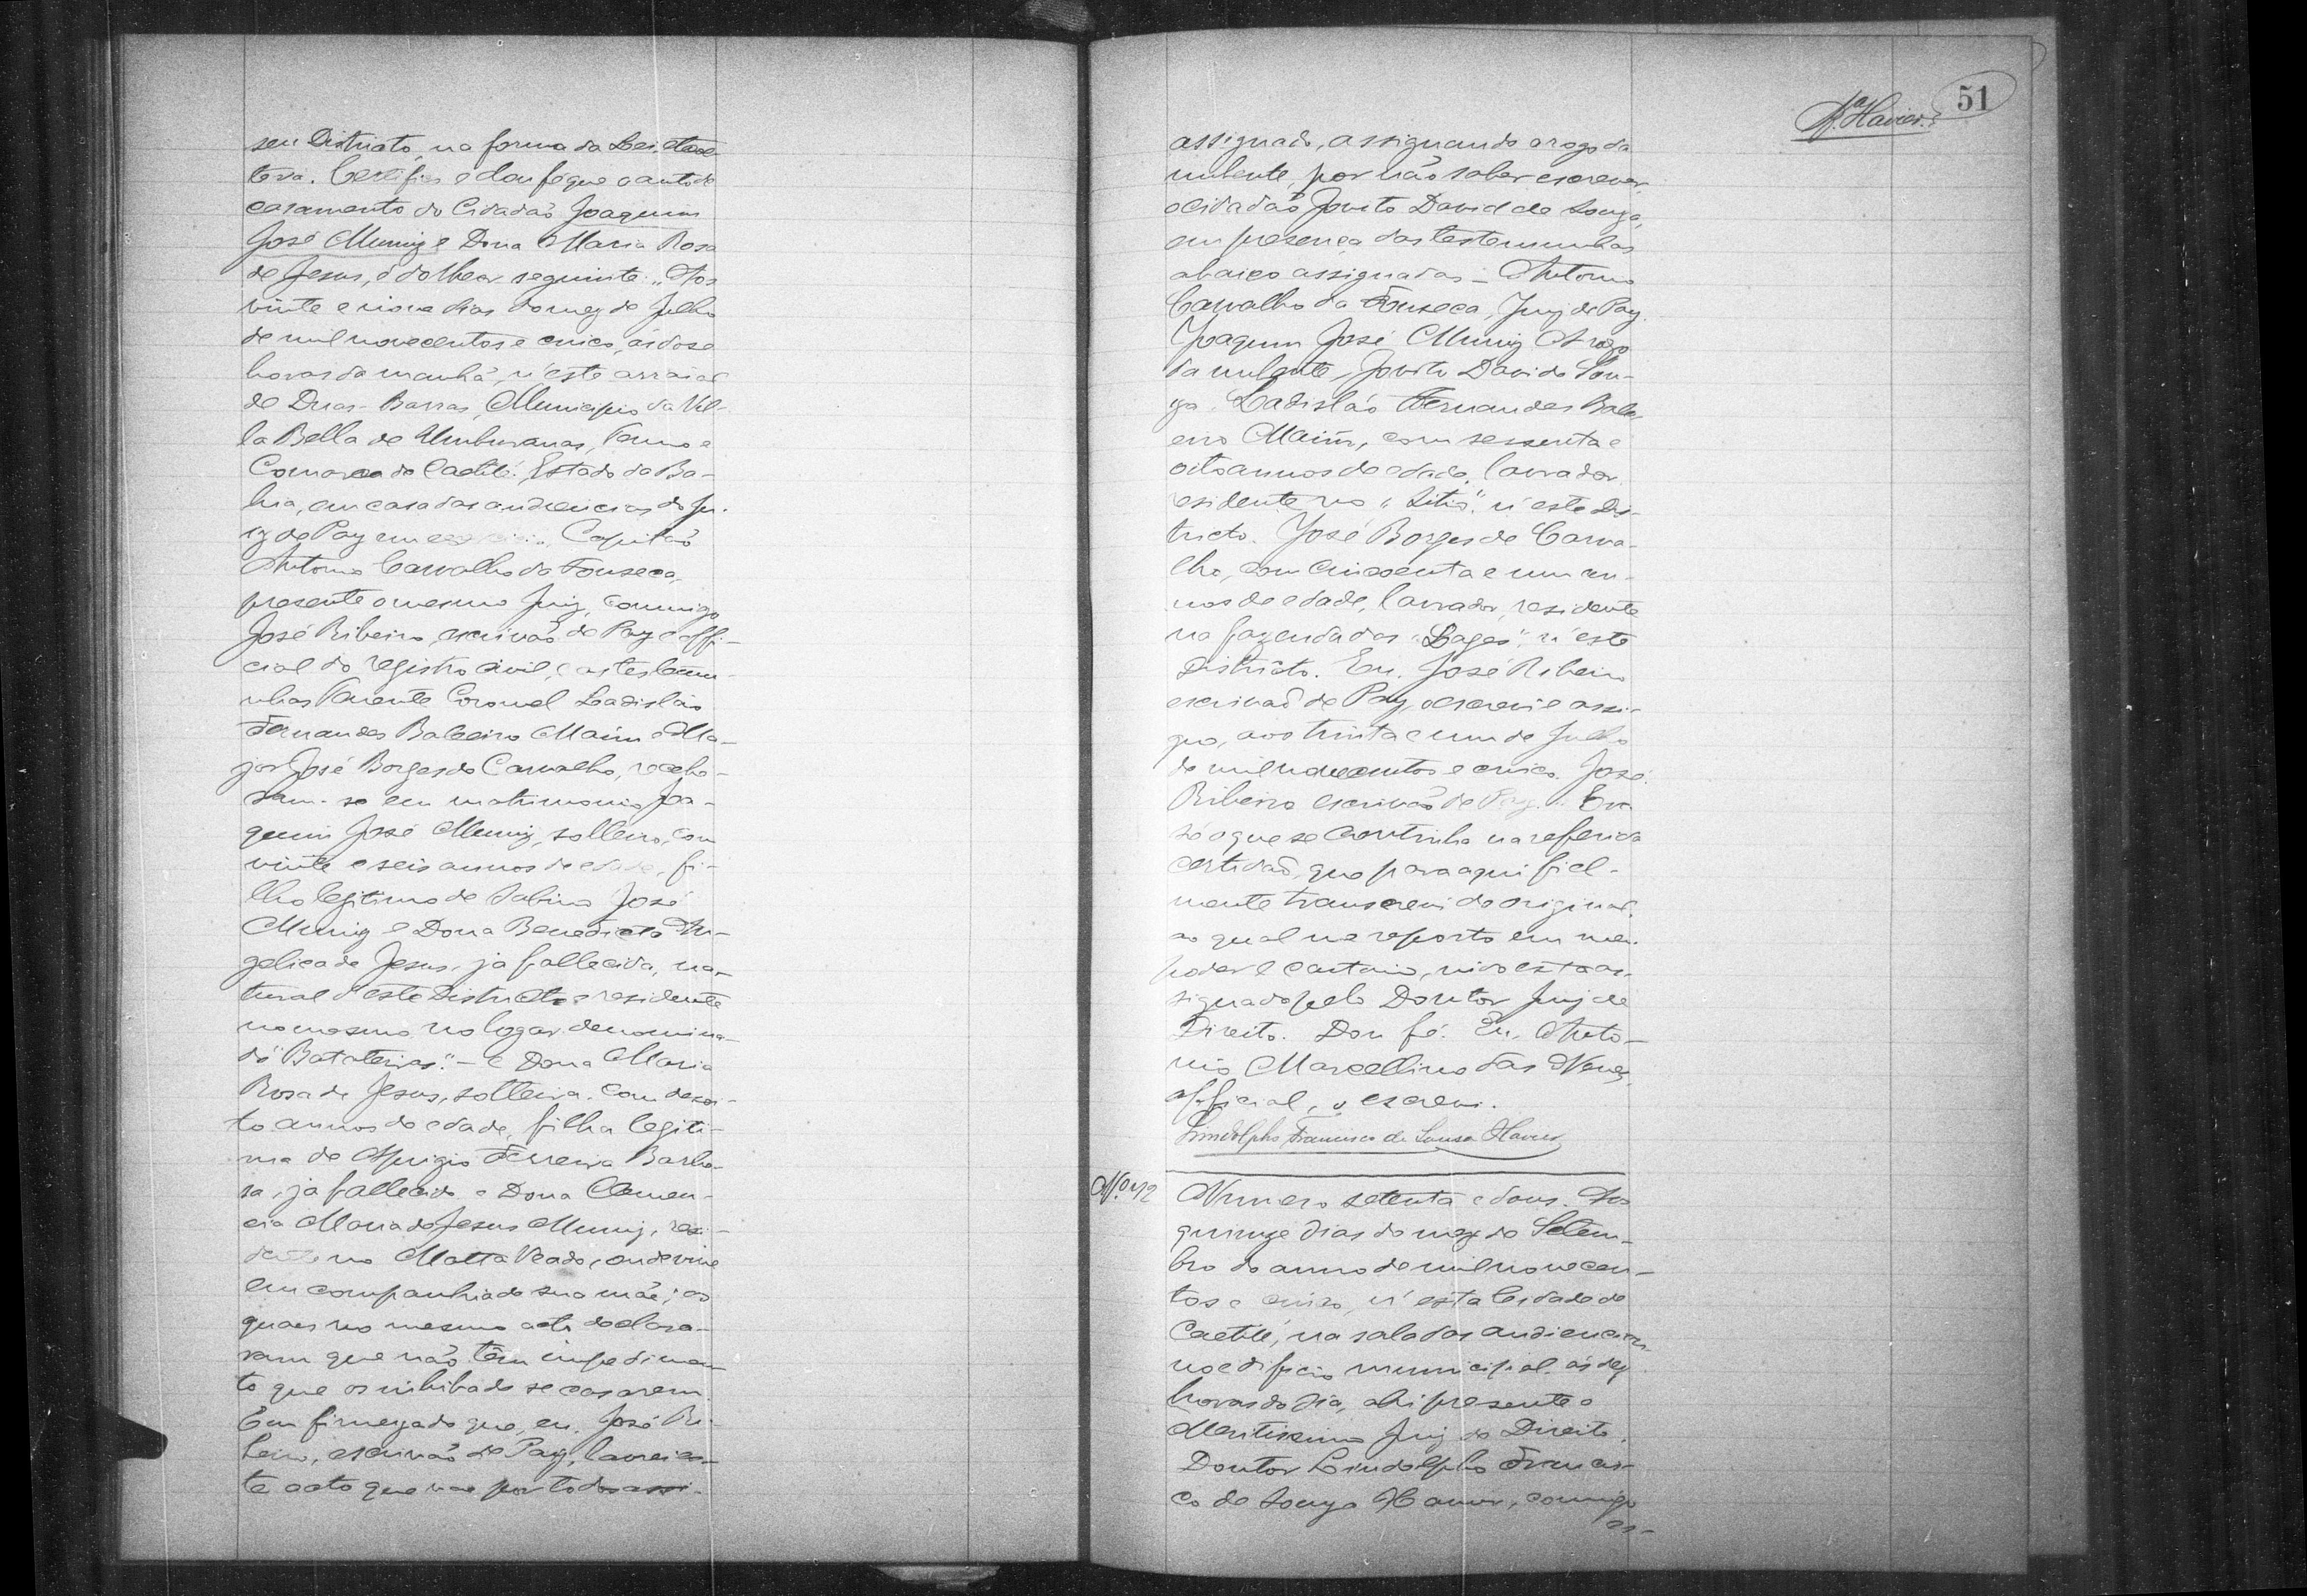 seu Districto, na forma da Lei, etcoe-
tera. Certifico e dou fé que o auto de
casamento do Cidadão Joaquim
José Muniz e Dona Maria Rosa
de Jesus, é do theor seguinte: "Aos
vinte e nove dias do mez de Julho
de mil novecentos e cinco, ás dose
horas da manhã, n'este arraial
de Duas-Barras, Municipio da Vil-
la Bella de Umburanas, Termo e
Comarca de Caetité, Estado da Ba-
hia, em casa das audiencias do Ju-
iz de Paz em Capitão
Antonio Carvalho da Fonseca,
presente o mesmo Juiz, commigo
José Ribeiro, escrivão de Paz e offi-
cial do registro civil, e as testemu-
nhas Tenente Coronel Ladisláo
Fernandes Baleeiro Maim e Ma-
jor José Borges de Carvalho, recebe-
ram-se em matrimonio Joa-
quim José Muniz, solteiro, com
vinte e seis annos de edade, fi-
lho legitimo de Sabino José
Muniz e Dona Benedicta An-
gelica de Jesus, ja fallecida, na-
tural d'este Districto e residente
no mesmo no logar denomina-
do "Batateiras". - e Dona Maria
Rosa de Jesus, solteira, com desoi-
to annos de edade, filha legiti-
ma de Aprigio Ferreira Barbo-
sa, ja fallecido e Dona Clemen-
cia Maria de Jesus Muniz, resi-
dente no Matta Veado, onde vive
em companhia de sua mãe; os
quaes no mesmo acto declara-
ram que não têm impedimen-
to que os inhiba de se casarem.
Em firmeza do que, eu, José Ri-
beiro, escrivão de Paz, lavrei es-
te acto que vae por todos assi-
51
Sª Havier.
assignado, assignando a rogo da
nubente, por não saber escrever,
o cidadão Jovito David de Souza,
em presença das testemunhas
abaixo assignadas - Antonio
Carvalho da Fonseca, Juiz de Paz.
Joaquim José Muniz. A rogo
da nubente, Jovito David de Sou-
za. Ladisláo Fernandes Bale-
eiro Maim, com sessenta e
oito annos de edade, lavrador
residente no "Sitio", n'este Dis-
tricto. José Borges de Carva-
lho, com cincoenta e um an-
nos de edade, lavrador, residente
na fazenda das "Lages", n'este
Districto. Eu, José Ribeiro
escrivão de Paz, o escrevi e assi-
gno, aos trinta e um de Julho
de mil novecentos e cinco. José
Ribeiro escrivão de Paz. Era
só o que se continha na referida
certidão, que para aqui fiel-
mente transcrevi do original,
ao qual me reporto em meu
poder e cartorio, indo esta as-
signado pelo Doutor Juiz de
Direito. Dou fé. Eu, Anto-
nio Marcellino das Neves,
official, o escrevi.
Lindolpho Francisco de Sousa Havier
Nº 72
Numero setenta e dous. Aos
quinze dias do mez de Setem-
bro do anno de mil novecen-
tos e cinco, n'esta Cidade de
Caetité, na sala das audiencias
no edificio municipal, ás dez
horas do dia, ahi presente o
Meritissimo Juiz de Direito,
Doutor Lindolpho Francis-
co de Souza Havier, comigo
es-